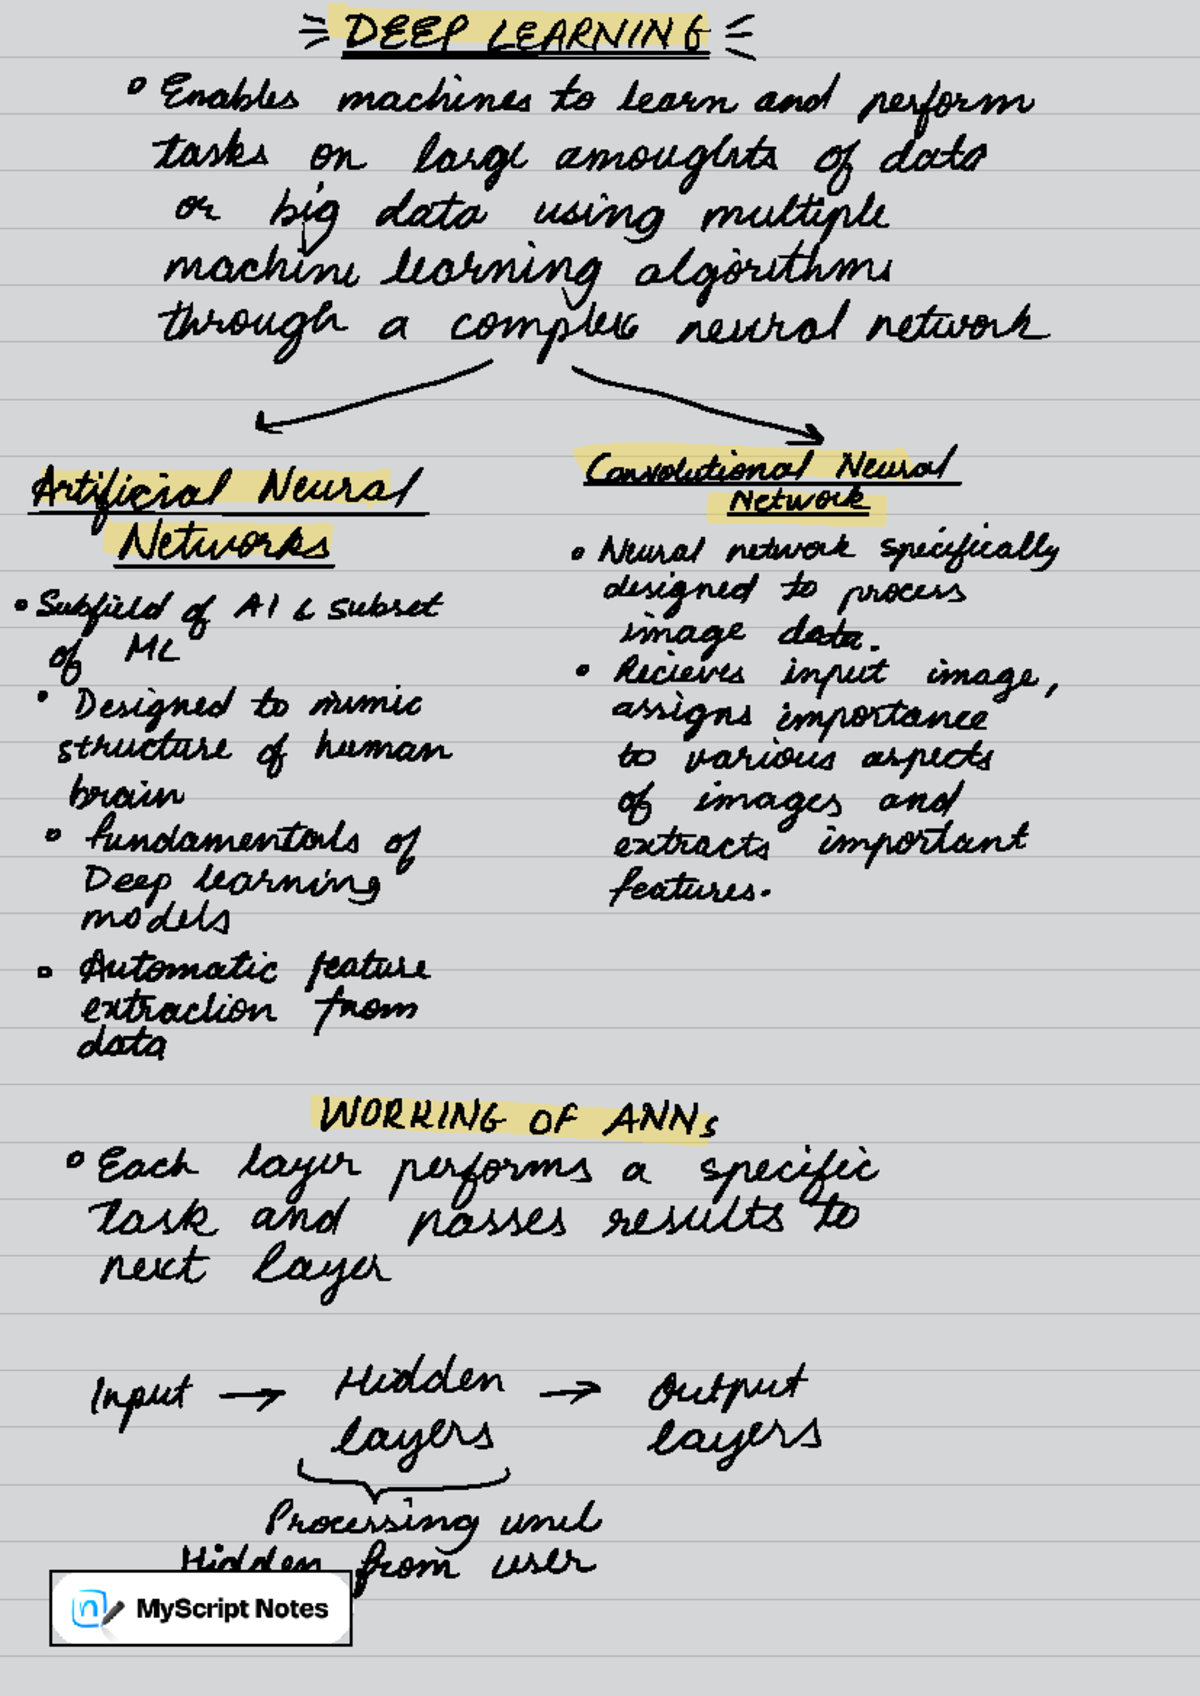 DEEP LEARNING
Enables machines to learn and perform
tasks on large amoughts of data
or big data using multiple
machine learning algorithms
through a complex neural network
Artificial Neural
Networks
Subfield of AI & subset
of ML
Designed to mimic
structure of human
brain
fundamentals of
Deep learning
models
Automatic feature
extraction from
data
Convolutional Neural
Network
Neural network specifically
designed to process
image data.
Recieves input image,
assigns importance
to various aspects
of images and
extracts important
features.
WORKING OF ANNs
Each layer performs a specific
task and passes results to
next layer
Input → Hidden → Output
layers layers
Processing
Hidden from user
MyScript Notes